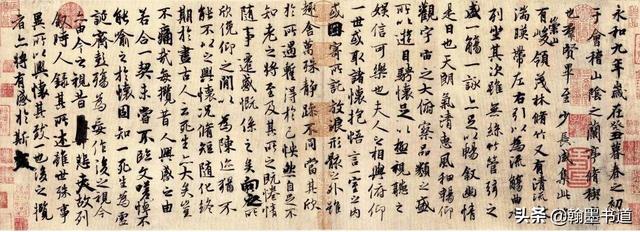 永和九年歲在癸丑暮春之初
于會稽山陰之蘭亭脩稧
也群賢畢至少長咸集此
有崇山峻領茂林脩竹又有清流
湍暎帶左右引以為流觴曲
列坐其次雖無絲竹管弦之
盛一觴一詠亦足以暢敘幽情
是日也天朗氣清惠風和暢仰
觀宇宙之大俯察品類之盛
所以遊目騁懷足以極視聽之
娛信可樂也夫人之相與俯仰
一世或取諸懷抱悟言一室之內
或因寄所託放浪形骸之外雖
趣舍萬殊靜躁不同當其欣
於所遇暫得於己快然自足不
知老之將至及其所之既惓情
隨事遷感慨係之矣向之所
欣俛仰之閒以為陳跡猶不
能不以之興懷況脩短隨化終
期於盡古人云死生亦大矣豈
不痛哉每攬昔人興感之由
若合一契未嘗不臨文嗟悼不
能喻之於懷固知一死生為虛
誕齊彭殤為妄作後之視今
亦由今之視昔悲夫故列
敘時人錄其所述雖世殊事
異所以興懷其致一也後之攬
者亦將有感於斯
头条 @翰墨书道